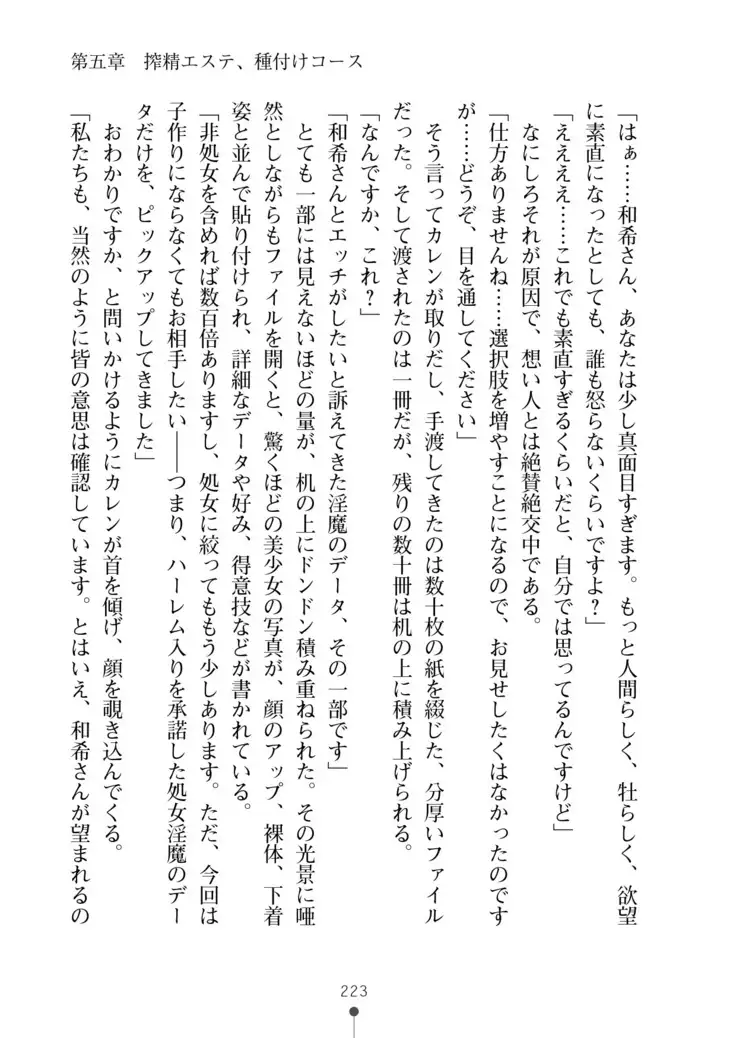 第五章　搾精エステ、種付けコース
「はぁ……和希さん、あなたは少し真面目すぎます。もっと人間らしく、牡らしく、欲望
に素直になったとしても、誰も怒らないくらいですよ?」
「ええええ……これでも素直すぎるくらいだと、自分では思ってるんですけど」
なにしろそれが原因で、想い人とは絶賛絶交中である。
「仕方ありませんね……選択肢を増やすことになるので、お見せしたくはなかったのです
が……どうぞ、目を通してください」
そう言ってカレンが取りだし、手渡してきたのは数十枚の紙を綴じた、分厚いファイル
だった。そして渡されたのは一冊だが、残りの数十冊は机の上に積み上げられる。
「なんですか、これ?」
「和希さんとエッチがしたいと訴えてきた淫魔のデータ、その一部です」
とても一部には見えないほどの量が、机の上にドンドン積み重ねられた。その光景に唖
然としながらもファイルを開くと、驚くほどの美少女の写真が、顔のアップ、裸体、下着
姿と並んで貼り付けられ、詳細なデータや好み、得意技などが書かれている。
「非処女を含めれば数百倍ありますし、処女に絞ってももう少しあります。ただ、今回は
子作りにならなくてもお相手したい――つまり、ハーレム入りを承諾した処女淫魔のデー
タだけを、ピックアップしてきました」
おわかりですか、と問いかけるようにカレンが首を傾げ、顔を覗き込んでくる。
「私たちも、当然のように皆の意思は確認しています。とはいえ、和希さんが望まれるの
223